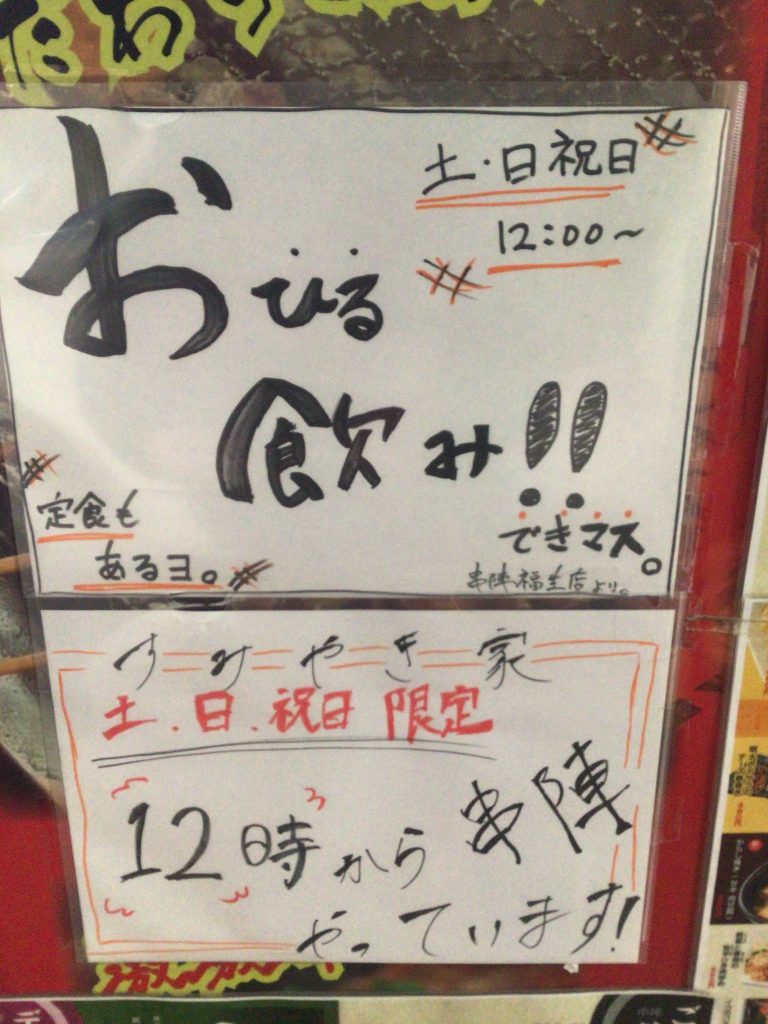 土・日祝日
12:00～
おひる
飲み!!
できマス。
定食も
あるヨ。
串陣福生店より。
すみやき家
土.日.祝日 限定
12時から 串陣
やっています!